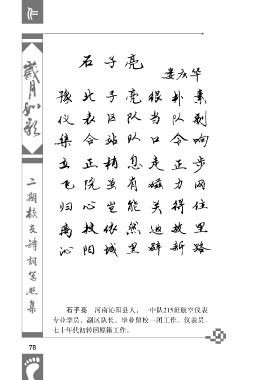 歲月如歌
二期校友诗词写照集
石子亮
娄庆华
豫北子亮很朴素
仪表区队当队别
集合站队口令响
立正稍息走正步
飞院虽有磁力网
归心岂能关得住
离校依然迴故里
沁阳城里辟新路
石子亮 河南沁阳县人,一中队215班航空仪表
专业学员、副区队长。毕业留校一团工作。仪表员。
七十年代初转回原籍工作。
78